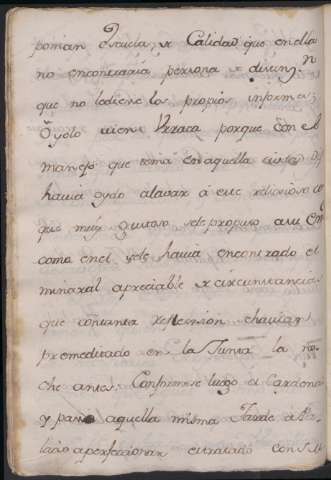 ponian Gracia, y Calidad que en ella
no encontraria persona de distin.n
que no le diese los propios informes;
Oyolo bien Veraca porque con el
manejo que tenia en aquella
havia oydo alavar á este religioso
que muy gustoso se le propuso a su Em
como en el se le havia encontrado el
mineral apreciable de circunstancias
que con tanta reflexion havian
premeditado en la Junta la no
che antes. Conformese luego el Cardenal
y paso aquella misma Tarde a Pa
lacio a perfeccionar el tratado con S. M.